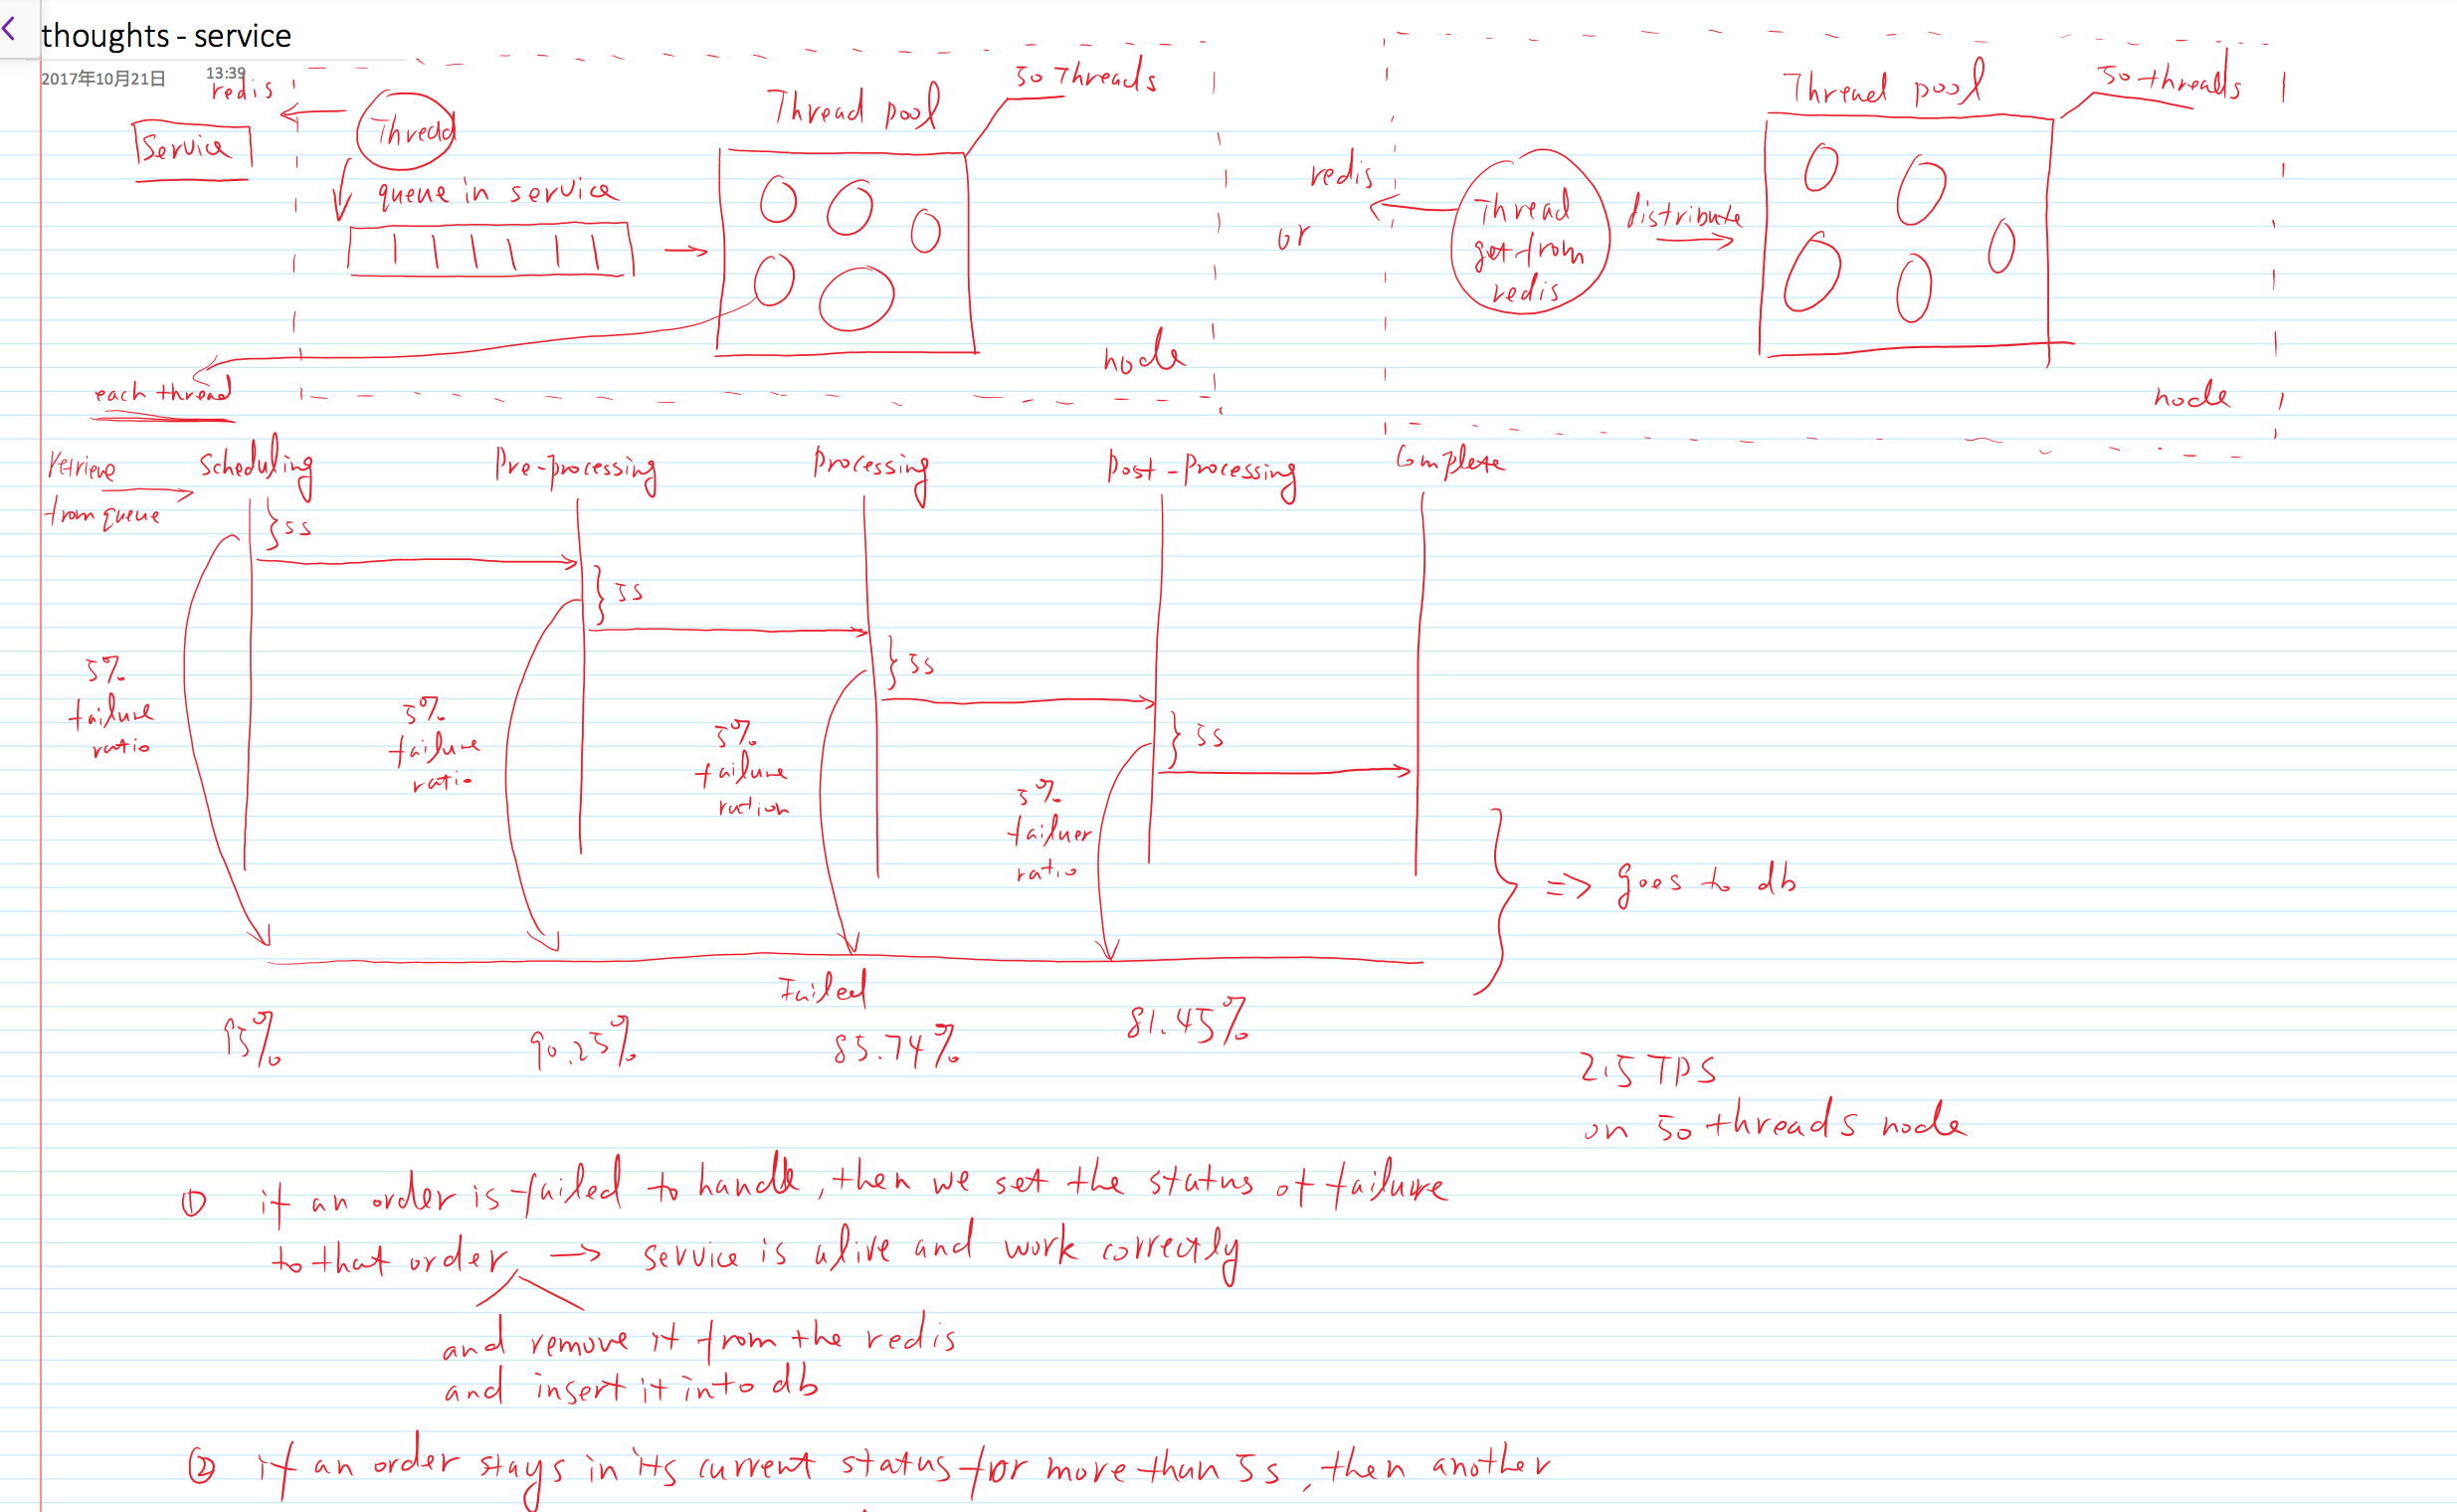 thoughts - service
2017年10月21日 13:39
redis
Service
Thread
queue in service
Thread pool
50 Threads
node
or
redis
Thread
get from
redis
distribute
Thread pool
50 threads
node
each thread
Retrieve
from queue
Scheduling
Pre-processing
Processing
Post-Processing
Complete
5s
5s
5s
5s
5%
failure
ratio
5%
failure
ratio
5%
failure
ration
5%
failuer
ratio
=> goes to db
Failed
95%
90.25%
85.74%
81.45%
2.5 TPS
on 50 threads node
① if an order is failed to handle, then we set the status of failure
to that order → service is alive and work correctly
and remove it from the redis
and insert it into db
② if an order stays in its current status for more than 5s, then another